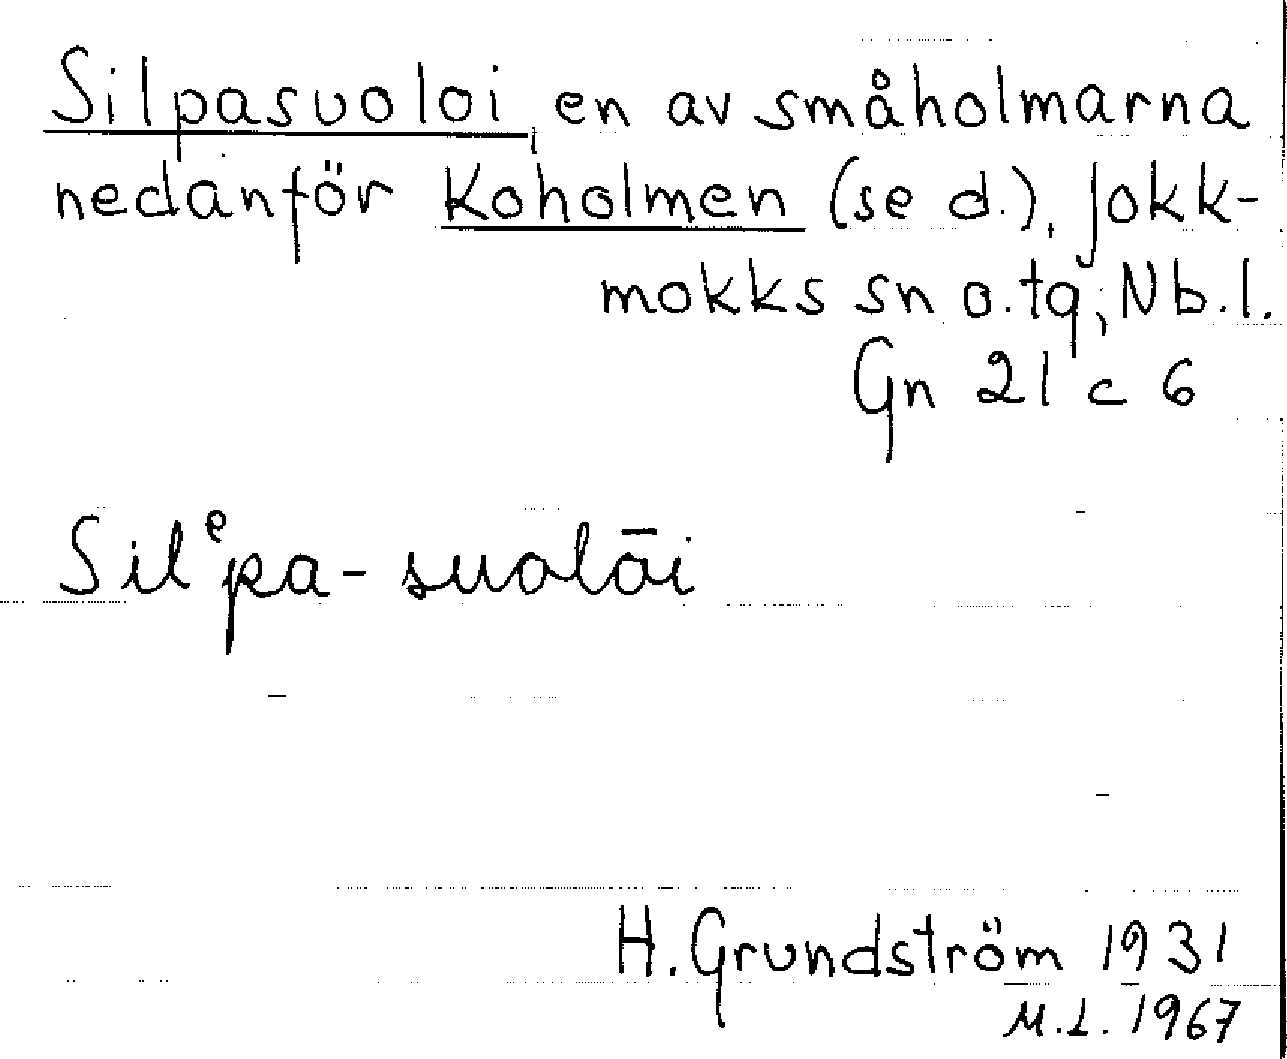 Silpasuoloi, en av småholmarna
nedanför Koholmen (se d.), Jokk-
mokks sn o. tg, Nb.l.
Gn 21 c 6
Silᵉpa-suolōi
H. Grundström 1931
M.L. 1967